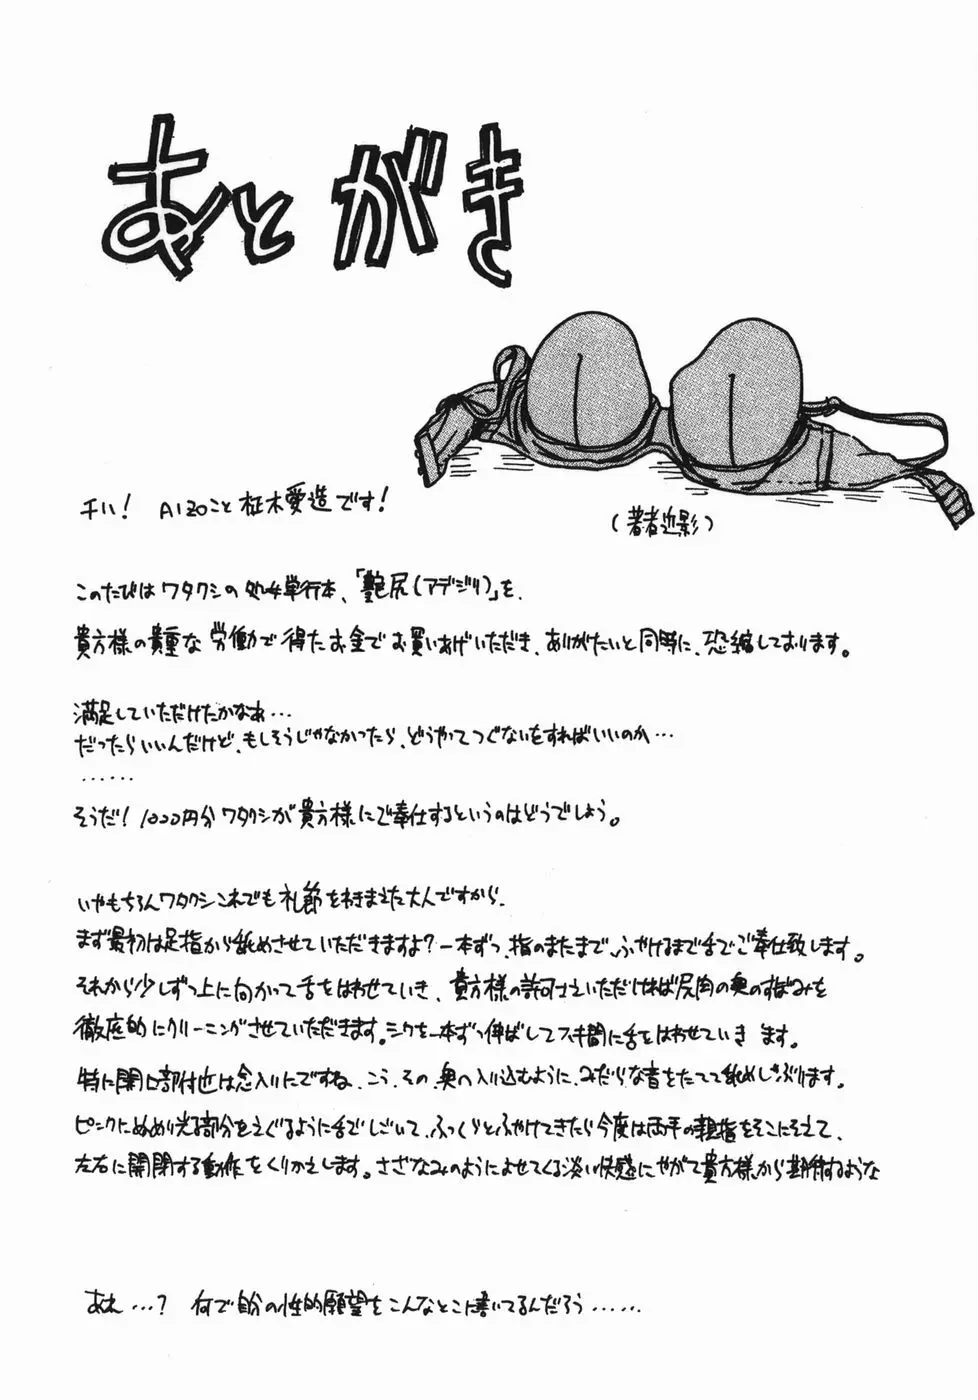 あとがき
チハ! AIZOこと柾木愛造です!
(著者近影)
このたびはワタクシの処女単行本、「艶尻(アデジリ)」を、
貴方様の貴重な労働で得たお金でお買いあげいただき、ありがたいと同時に、恐縮しております。
満足していただけたかなぁ…
だったらいいんだけど、もしそうじゃなかったら、どうやってつぐないをすればいいのか…
……
そうだ! 1000円分ワタクシが貴方様にご奉仕するというのはどうでしょう。
いやもちろんワタクシこれでも礼節をわきまえた大人ですから、
まず最初は足指から舐めさせていただきますよ?一本ずつ、指のまたまで、ふやけるまで舌でご奉仕致します。
それから少しずつ上に向かって舌をはわせていき、貴方様の許可さえいただければ尻肉の奥のすぼみを
徹底的にクリーニングさせていただきます。シワを一本ずつ伸ばしてスキ間に舌をはわせていきます。
特に開口部付近は念入りにですね、こう、その奥へ入り込むように、みだらな音をたてて舐めしゃぶります。
ピンクにぬめり光る部分をえぐるように舌でしごいて、ふっくらとふやけてきたら今度は両手の親指をそこにそえて、
左右に開閉する動作をくりかえします。さざなみのようによせてくる淡い快感にやがて貴方様から期待するような
あれ…? 何で自分の性的願望をこんなとこに書いてるんだろう……